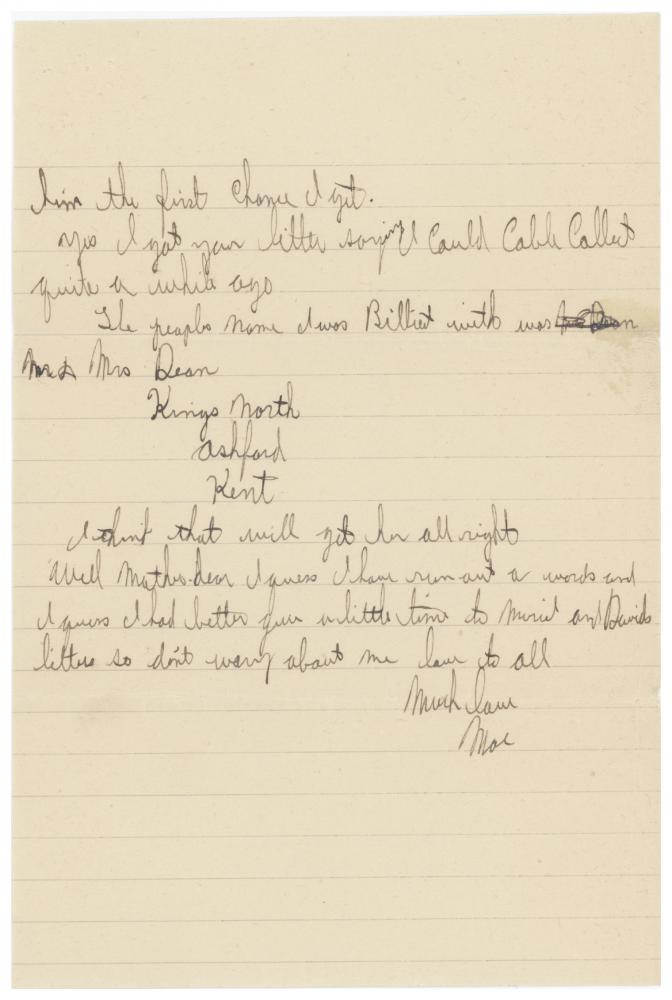 him the first chance I get.
Yes I got your letter saying I Could Cable Collect
quite a while ago
The peoples name I was Billiet with was
Mr & Mrs Dean
Kings North
Ashford
Kent
I think that will get her all right
Well Mother dear I guess I have run out a words and
I guess I had better give a little time to Muriel and Davids
letters so don't worry about me love to all
Much love
Mac